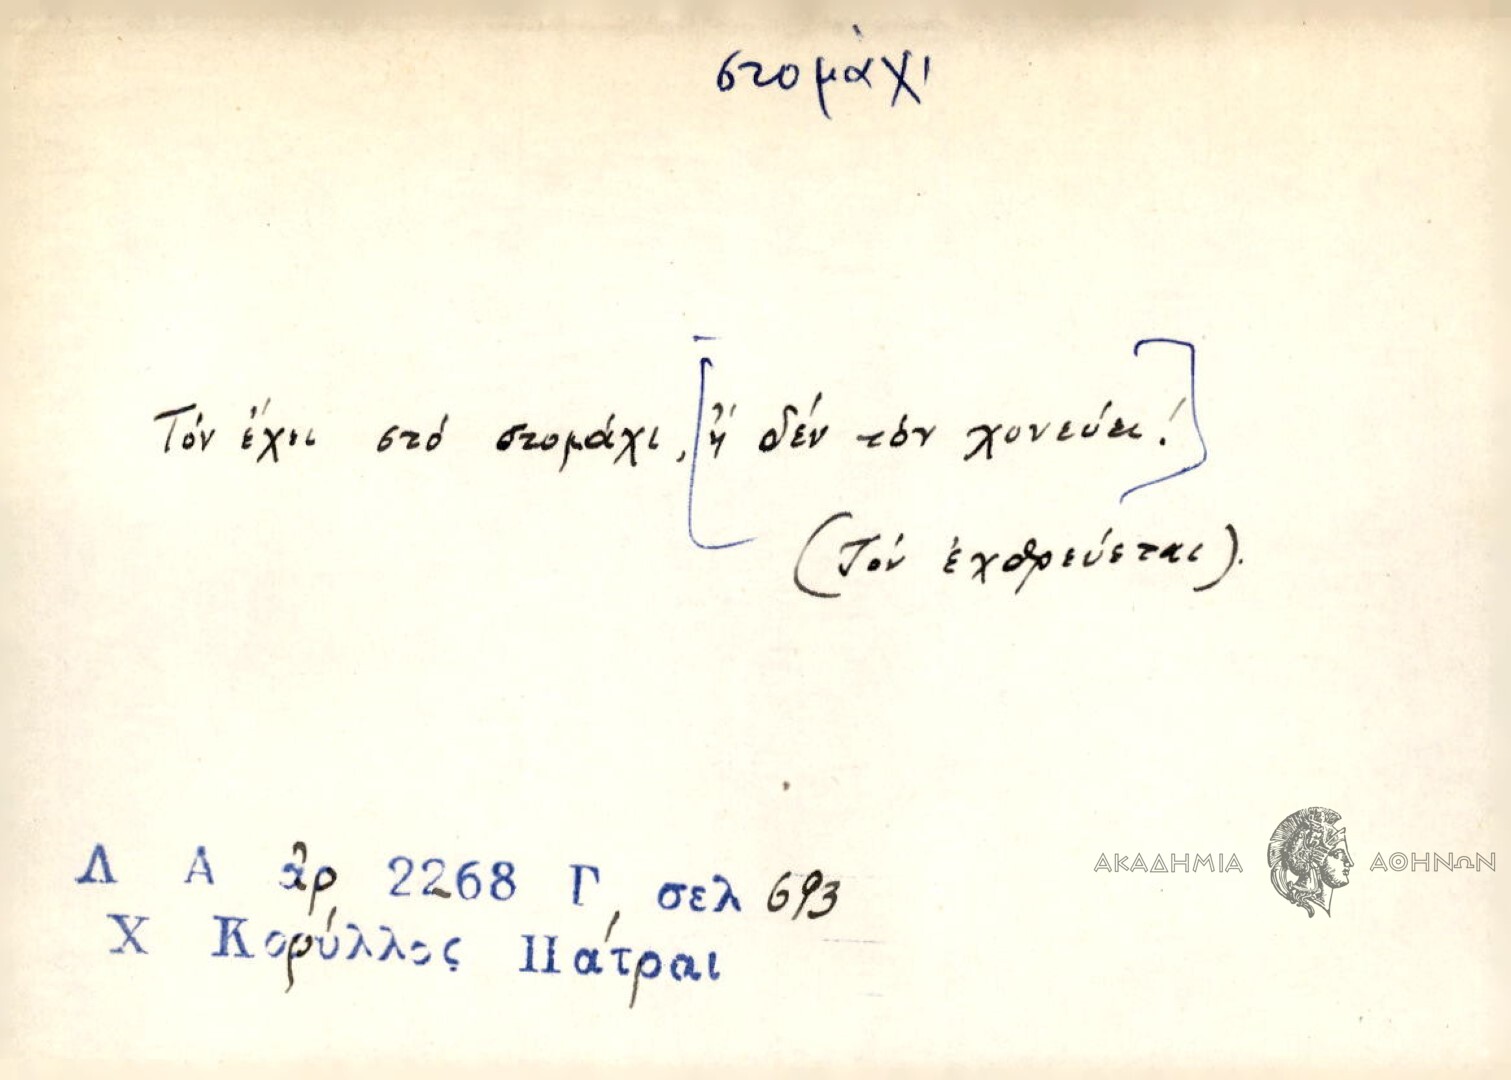 στομάχι
Τόν ἔχει στό στομάχι, [ἤ δέν τόν χονεύει!]
(Τόν ἐχθρεύεται).
Λ Α ἀρ 2268 Γ, σελ 693
Χ Κορύλλος Πάτραι
ΑΚΑΔΗΜΙΑ ΑΘΗΝΩΝ